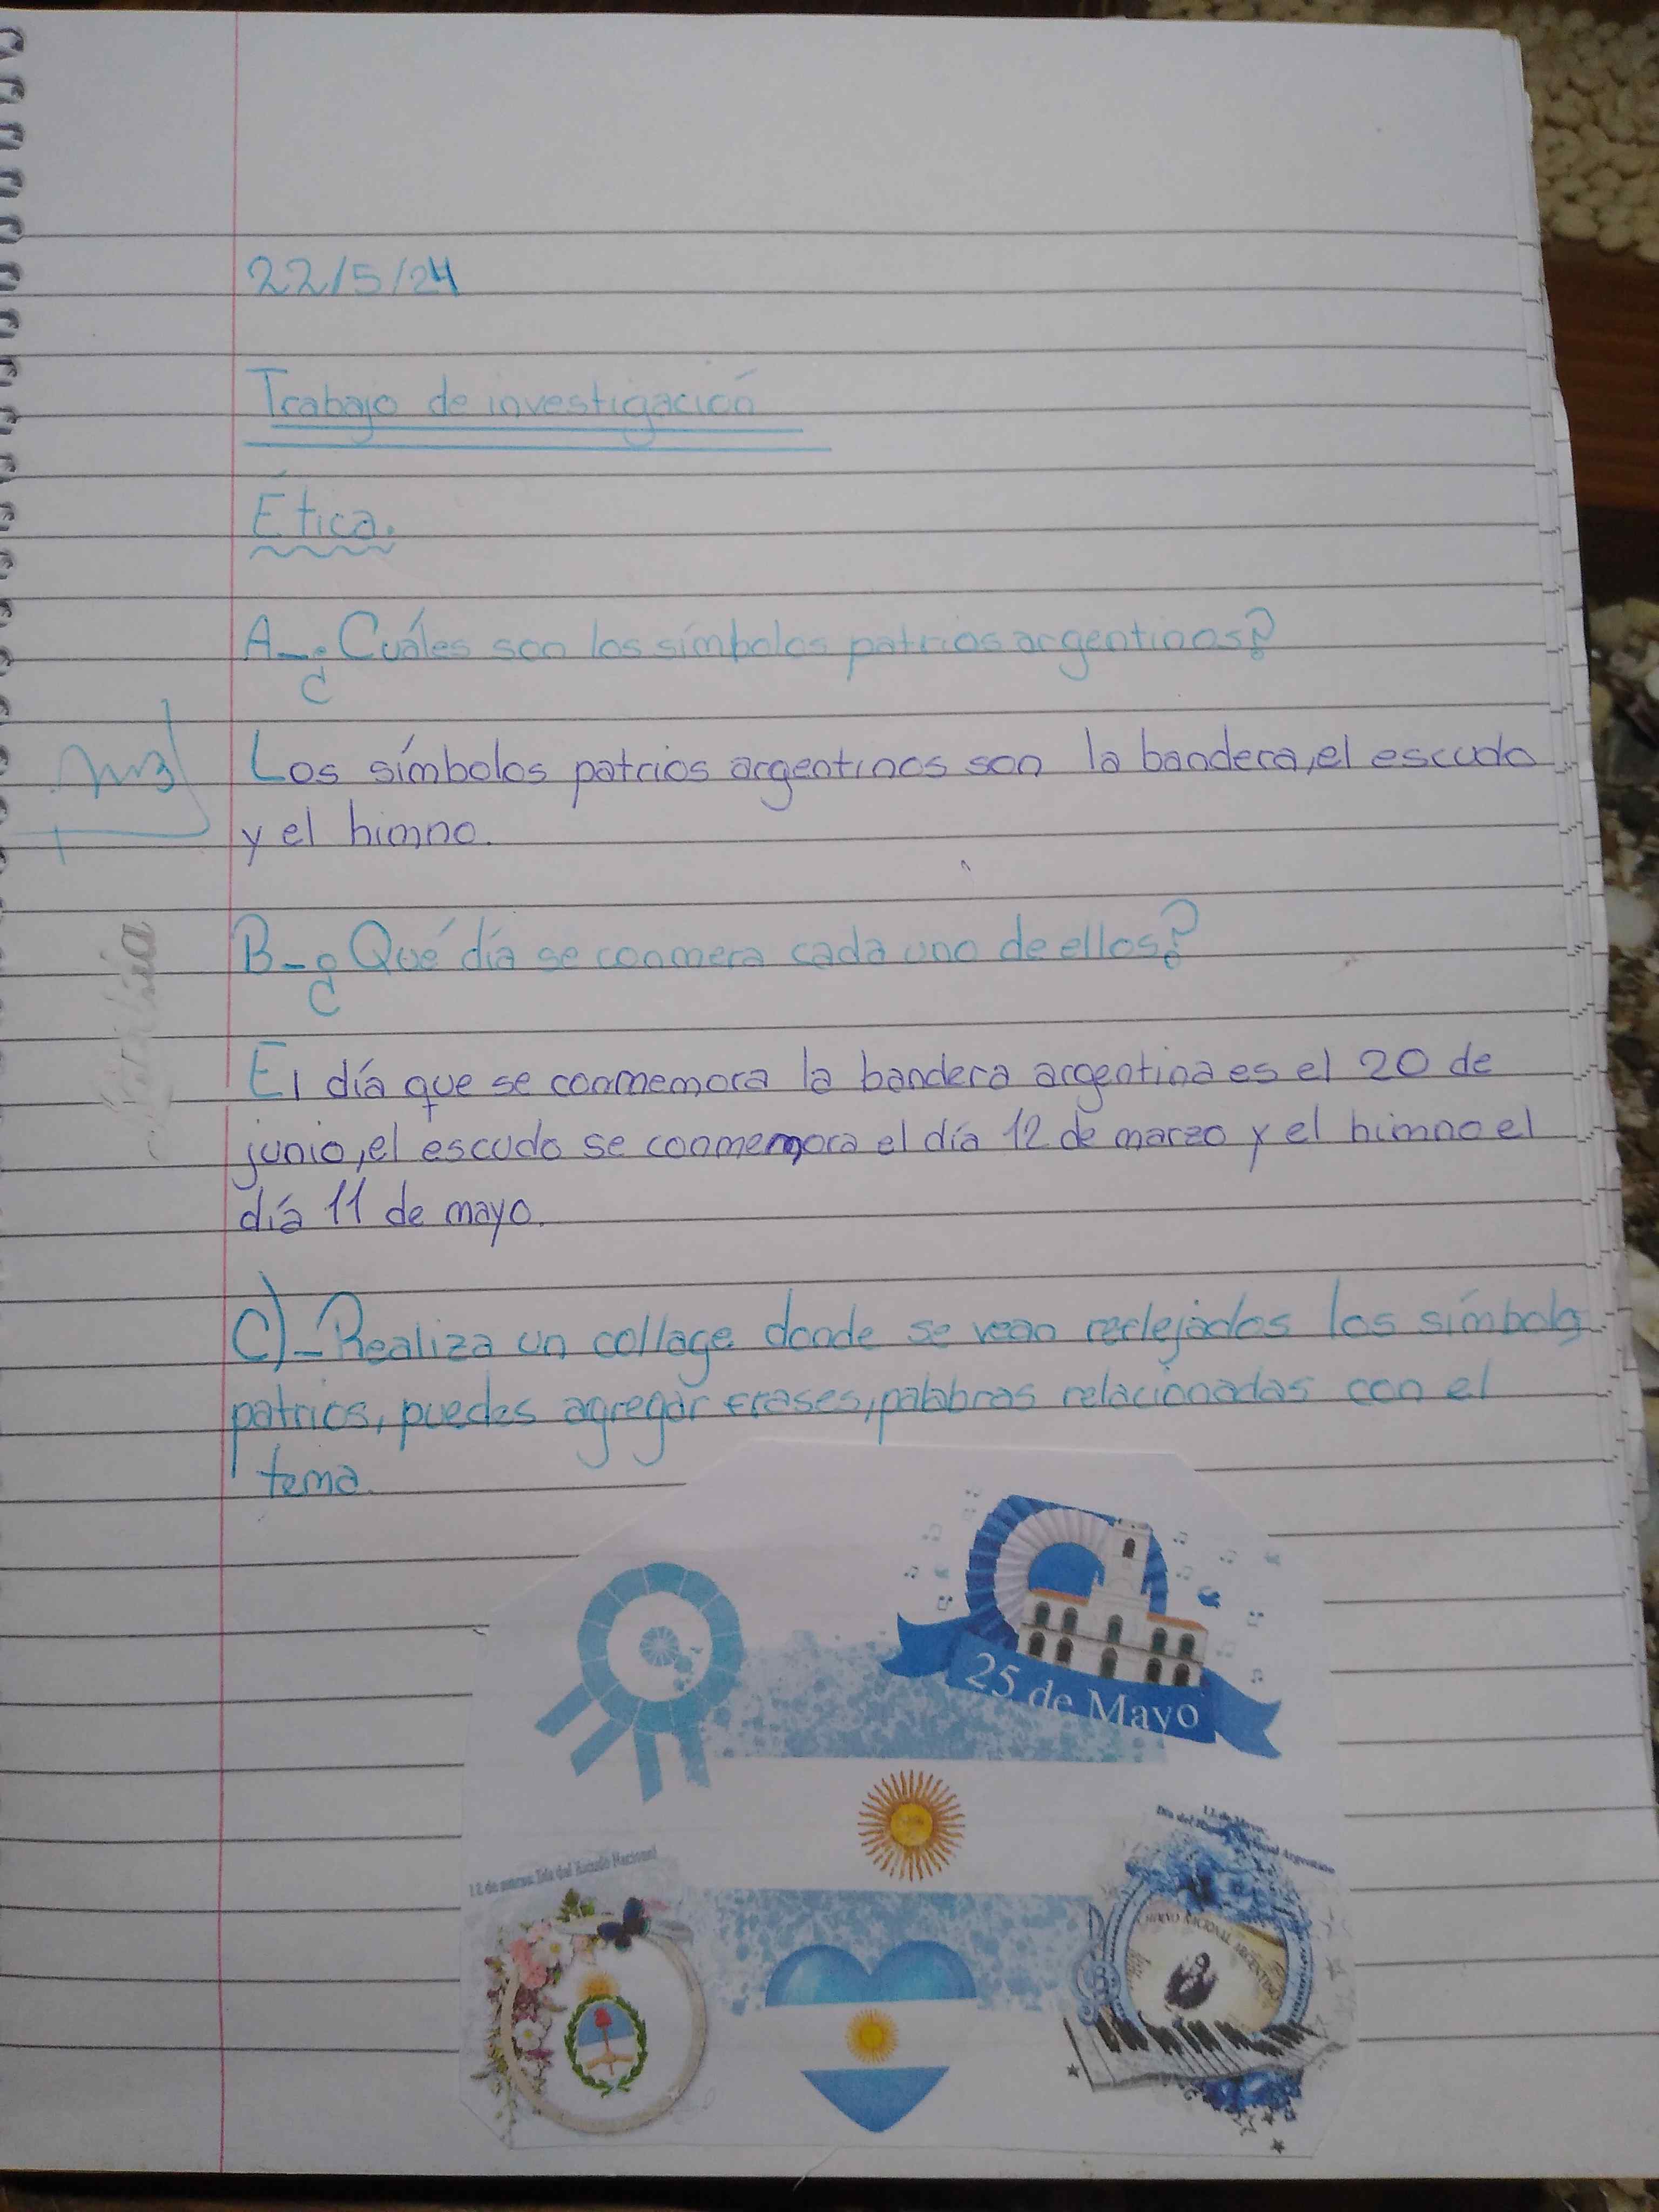 22/5/24
Trabajo de investigación
Ética.
A-¿Cuáles son los símbolos patrios argentinos?
Los símbolos patrios argentinos son la bandera, el escudo
y el himno.
B-¿Qué día se conmera cada uno de ellos?
El día que se conmemora la bandera argentina es el 20 de
junio, el escudo se conmemora el día 12 de marzo y el himno el
día 11 de mayo.
C)-Realiza un collage donde se vean reclejados los símbolos
patrios, puedes agregar frases, palabras relacionadas con el
tema.
25 de Mayo
12 de marzo: Día del Escudo Nacional
11 de Mayo:
Día del Himno Nacional Argentino
HIMNO NACIONAL ARGENTINO